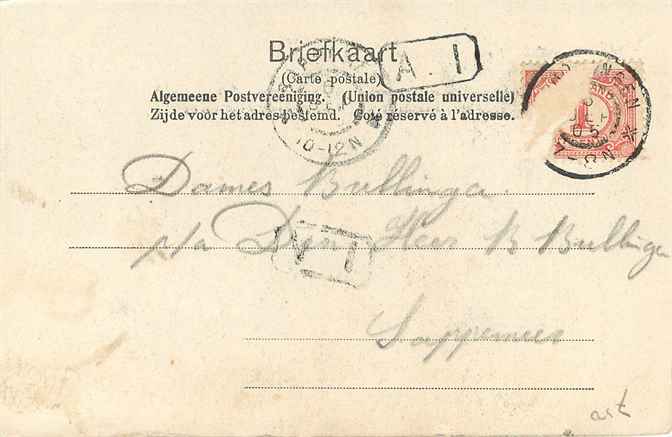 Briefkaart
(Carte postale)
Algemeene Postvereeniging. (Union postale universelle)
Zijde voor het adres bestemd. Côté réservé à l'adresse.
A I
10-12N
1
Dames Bullinga.
p/a Den Heer B Bullinga
A I
Sappemeer
art